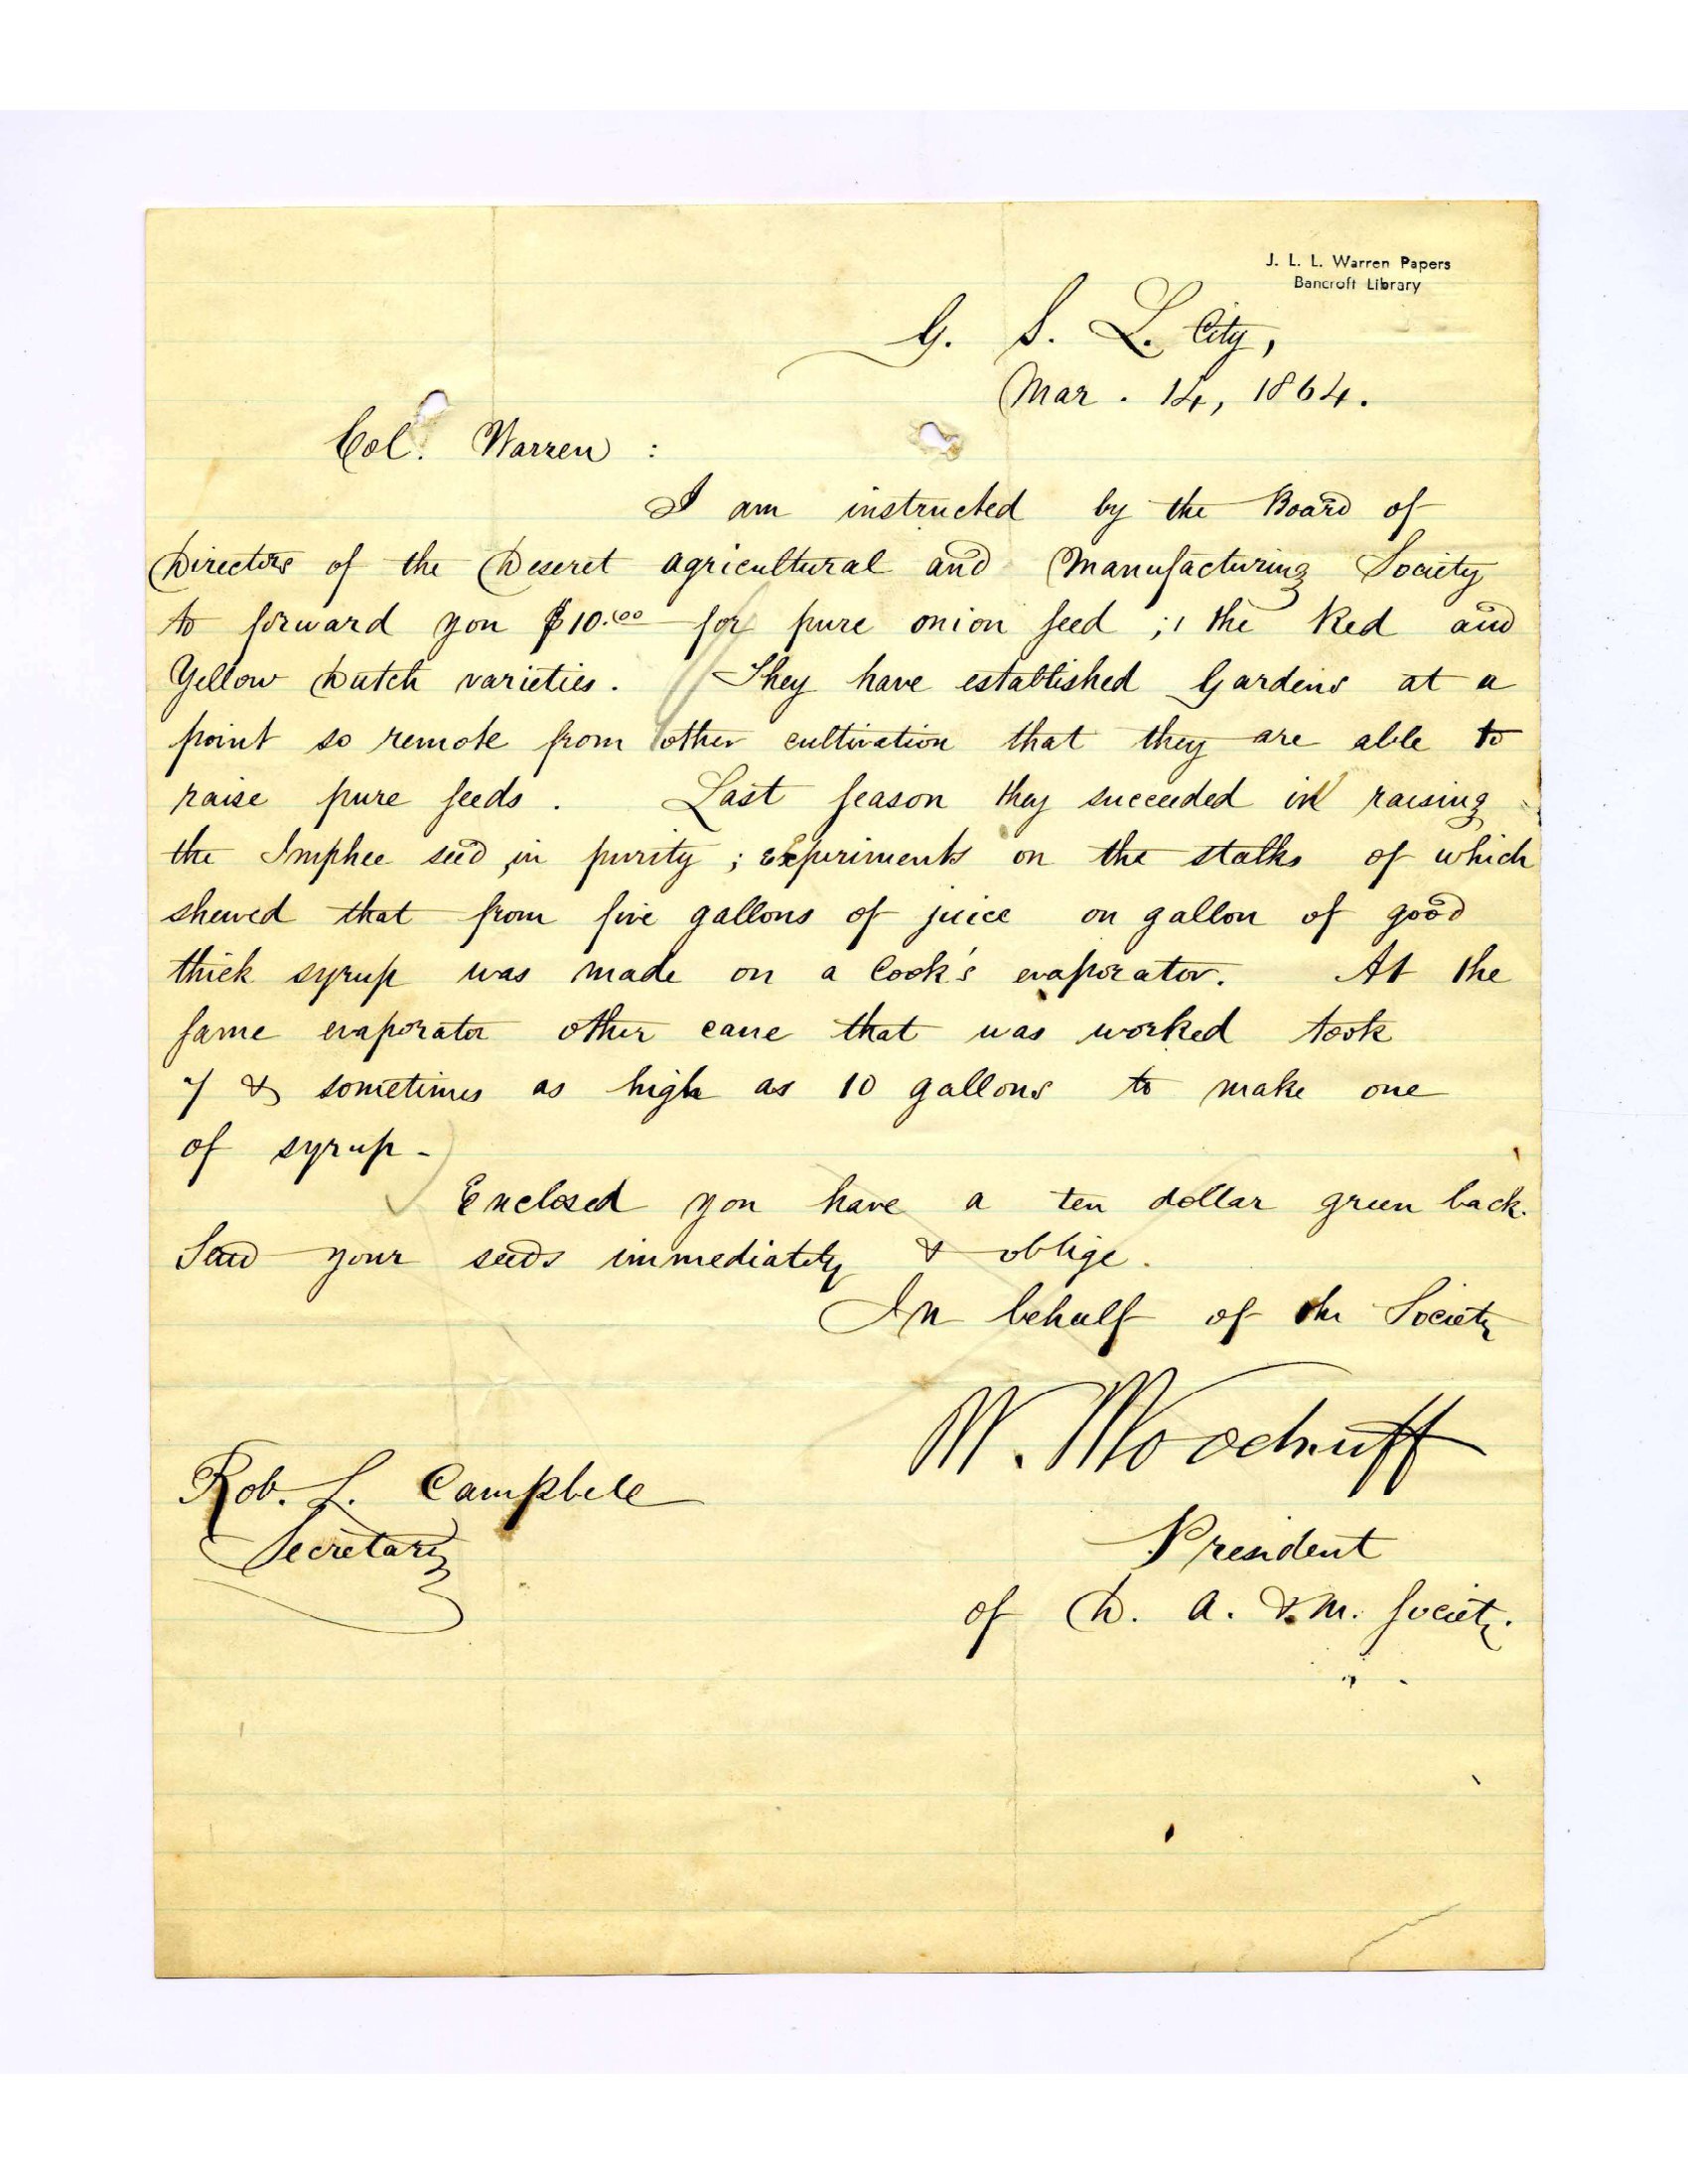 J. L. L. Warren Papers
Bancroft Library
G. S. L. City,
Mar. 14, 1864.
Col. Warren :
I am instructed by the Board of
Directors of the Deseret Agricultural and Manufacturing Society
to forward you $10.00 for pure onion seed ; the Red and
Yellow Dutch varieties. They have established Gardens at a
point so remote from other cultivation that they are able to
raise pure seeds. Last season they succeeded in raising
the Imphee seed in purity ; Experiments on the stalks of which
shewed that from five gallons of juice on gallon of good
thick syrup was made on a Cook's evaporator. At the
same evaporator other cane that was worked took
7 & sometimes as high as 10 gallons to make one
of syrup -
Enclosed you have a ten dollar green back.
Send your seeds immediately & oblige.
In behalf of the Society
W. Woodruff
Rob. L. Campbell
Secretary
President
of D. A. & M. Society.